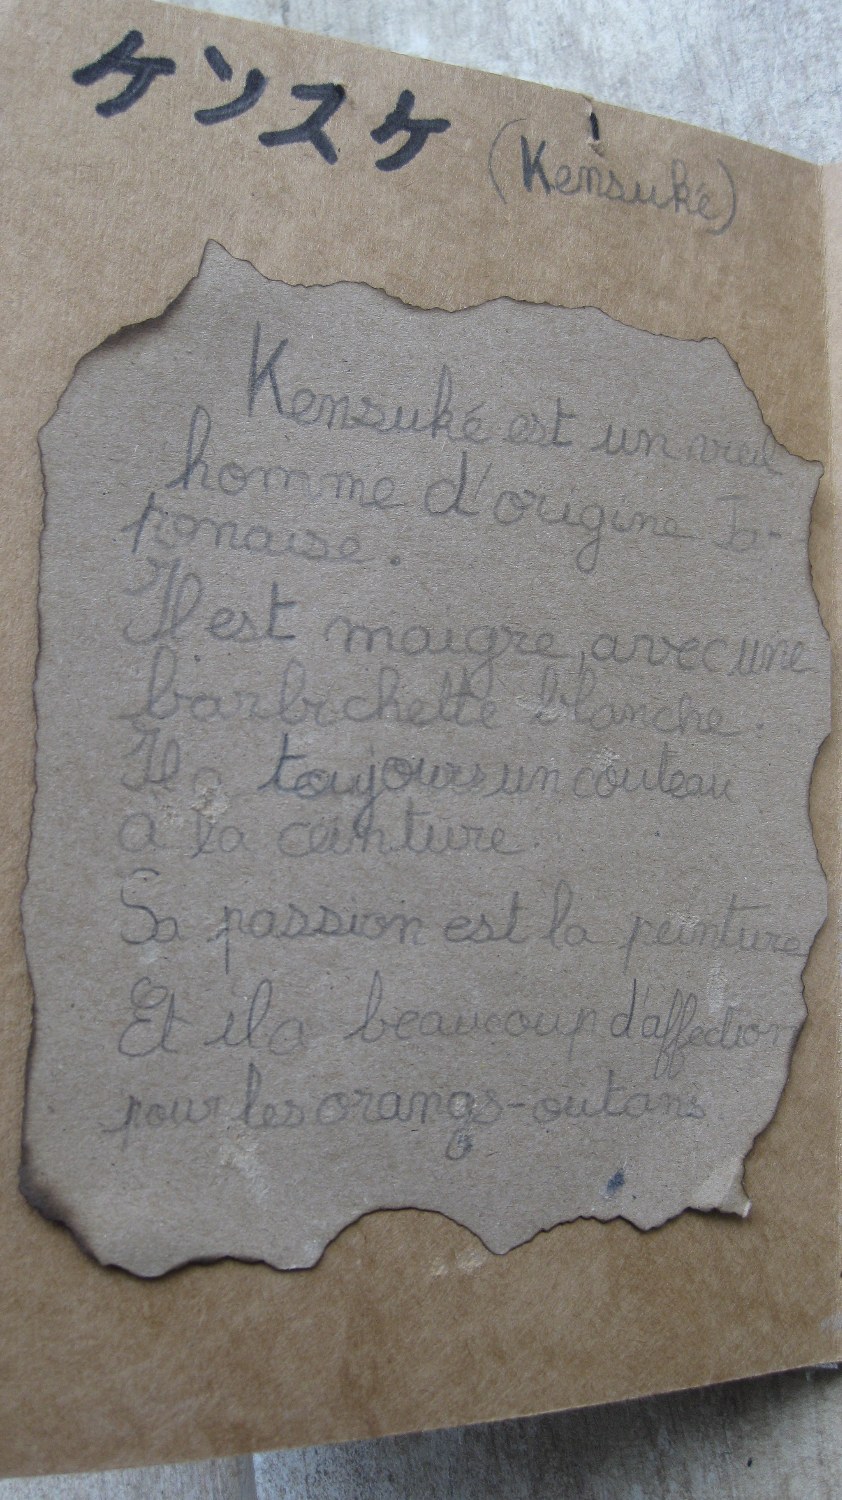 ケンスケ (Kensuké)
Kensuké est un vieil
homme d'origine Ja-
ponaise.
Il est maigre, avec une
barbichette blanche.
Il a toujours un couteau
à la ceinture.
Sa passion est la peinture
Et il a beaucoup d'affection
pour les orangs-outans